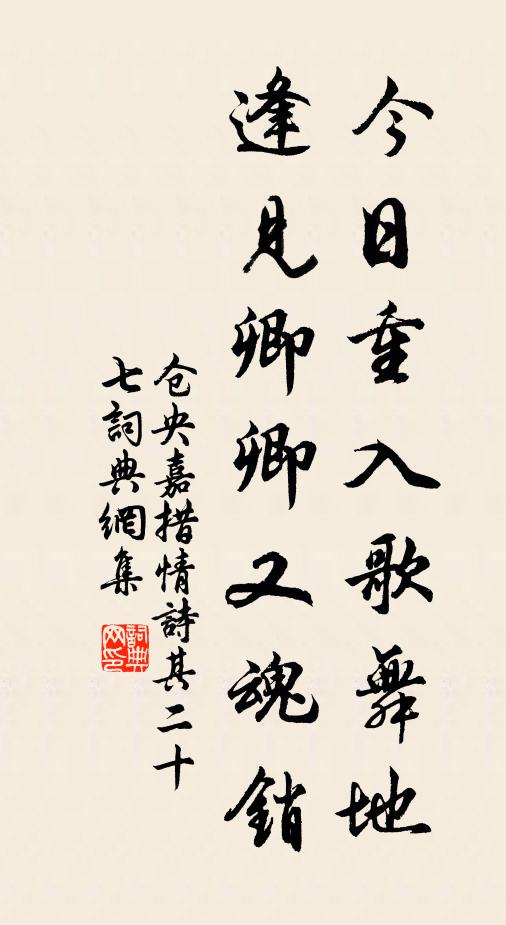 今日重入歌舞地
逢見卿卿又魂銷
仓央嘉措情詩其二十
七詞典網集
詞典
网印